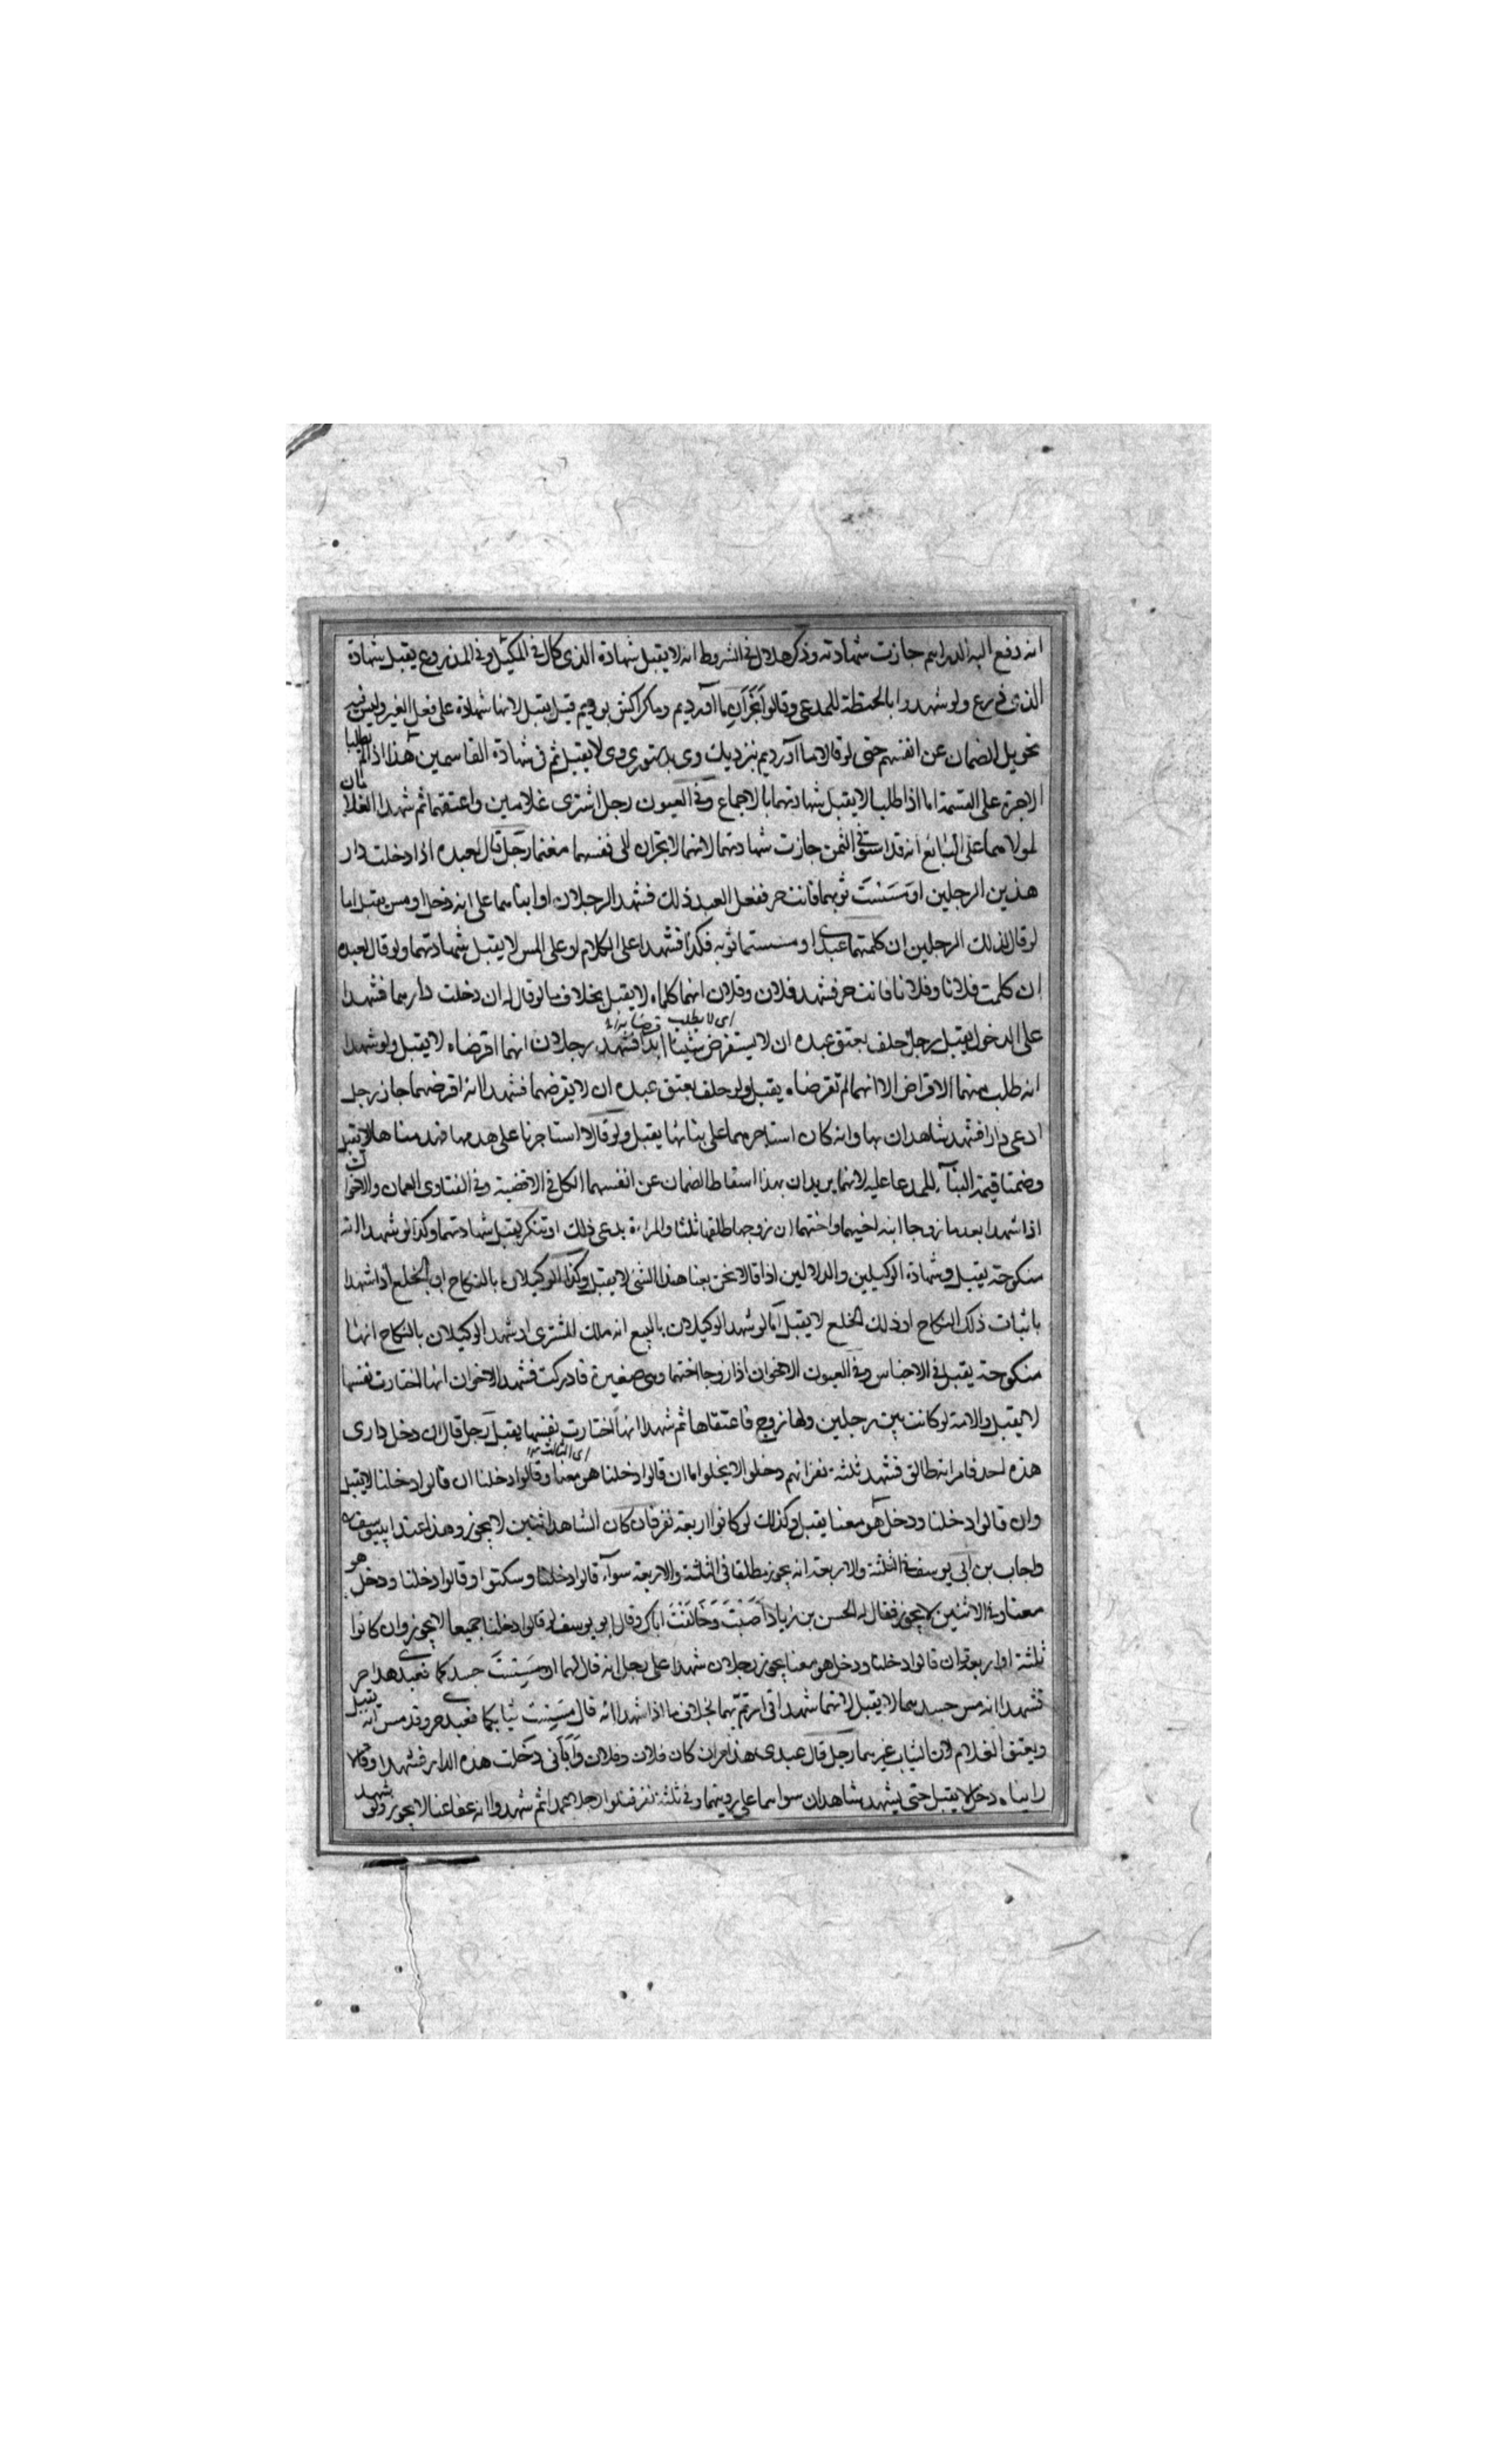 انه دفع اليه الدراهم جازت شهادته وذكر هلال في الشروط انه لا يقبل شهادة الذى كال في المكيل وفي المذروع يقبل شهادة
الذى ذرع ولو شهدوا بالحنطة للمدعى وقالوا ما آورديم وما كراكش بوديم قيل يقبل لانها شهادة على فعل الغير وليس فيه
تحويل الضمان عن انفسهم حتى لو قالا ما آورديم بنزديك وى بدستورى وى لا يقبل ثم في شهادة القاسمين هذا اذا لم يطلبا
الاجرة على القسمة اما اذا طلبا لا يقبل شهادتهما بالاجماع وفي العيون رجل اشترى غلامين واعتقهما ثم شهدا الغلامان
لمولاهما على البائع انه قد استوفى الثمن جازت شهادتهما لانهما لا يجران الى نفسهما مغنما رجل قال لعبده اذا دخلت دار
هذين الرجلين او مَسَسْتَ ثوبهما فانت حر ففعل العبد ذلك فشهد الرجلان او ابناهما على انه دخل او مس يقبل اما
لو قال لذلك الرجلين ان كلمتما عبدى او مسستما ثوبه فكذا فشهدا على الكلام او على المس لا يقبل شهادتهما ولو قال لعبده
ان كلمت فلانا وفلانا فانت حر فشهد فلان وفلان انهما كلماه لا يقبل بخلاف ما لو قال له ان دخلت دارهما فشهدا
على الدخول يقبل رجل حلف بعتق عبده ان لا يستقرض شيئا ابدا فشهد رجلان انهما اقرضاه لا يقبل ولو شهدا
اى لا يطلب قرضا
انه طلب منهما الاقراض الا انهما لم تقرضاه يقبل ولو حلف بعتق عبده ان لا يقرضهما فشهدا انه اقرضهما جاز رجل
ادعى دارا فشهد شاهدان بها وانه كان استاجرهما على بنائها يقبل ولو قالا استاجرنا على هدمها فهدمناها لا يقبل
وضمنا قيمة البنآء للمدعا عليه لانهما يريدان بهذا اسقاط الضمان عن انفسهما الكل في الاقضية وفي الفتاوى العمان والاخوان
اذا شهدا بعدما زوجا ابنة اخيهما واختهما ان زوجها طلقها ثلثا والمراءة يدعى ذلك او تنكر يقبل شهادتهما وكذا لو شهدا انه
منكوحته يقبل وشهادة الوكيلين والدلالين اذا قالا نحن بعنا هذا الشئ لا يقبل وكذا الوكيلان بالنكاح او الخلع اذا شهدا
باثبات ذلك النكاح او ذلك الخلع لا يقبل اما لو شهد الوكيلان بالبيع انه ملك المشترى او شهد الوكيلان بالنكاح انها
منكوحته يقبل في الاجناس وفي العيون الاخوان اذا زوجا اختهما وهى صغيرة فادركت فشهد الاخوان انها اختارت نفسها
لا يقبل والامة لو كانت بين رجلين ولها زوج فاعتقاها ثم شهدا انها اختارت نفسها يقبل رجل قال ان دخل دارى
هذه احد فامراته طالق فشهد ثلثة نفر انهم دخلوا لا يخلوا اما ان قالوا دخلنا هو معنا وقالوا دخلنا ان قالوا دخلنا لا يقبل
اى الثالث
وان قالوا دخلنا ودخل هو معنا يقبل وكذلك لو كانوا اربعة نفر فان كان الشاهد اثنين لا يجوز وهذا عند ابى يوسف
واجاب بن ابى يوسف في الثلثة والاربعة انه يجوز مطلقا في الثلثة والاربعة سوآء قالوا دخلنا وسكتوا او قالوا دخلنا ودخل هو
معنا وفي الاثنين لا يجوز فقال له الحسن بن زياد اَصَبْتَ وَخَالَفْتَ اباك وقال ابو يوسف لو قالوا دخلنا جميعا لا يجوز وان كانوا
ثلثة او اربعة وان قالوا دخلنا ودخل هو معنا يجوز رجلان شهدا على رجل انه قال لهما ان مَسِسْتُ جسدكما فعبدى هذا حر
فشهدا انه مس جسدهما لا يقبل لانهما شهدا في امر تم بهما بخلاف ما اذا شهدا انه قال مَسِسْتُ ثيابكما فعبدى حر وقد مس انه يقبل
ويعتق الغلام لان الثياب غيرهما رجل قال عبدى هذا حر ان كان فلان وفلان دخلت هذه الدار فشهدا وقالا
رايناه دخل لا يقبل حتى يشهد شاهدان سواهما على رويتهما وفي ثلثة نفر قتلوا رجلا عمدا ثم شهدوا انه عفا عنا لا يجوز ولو شهد